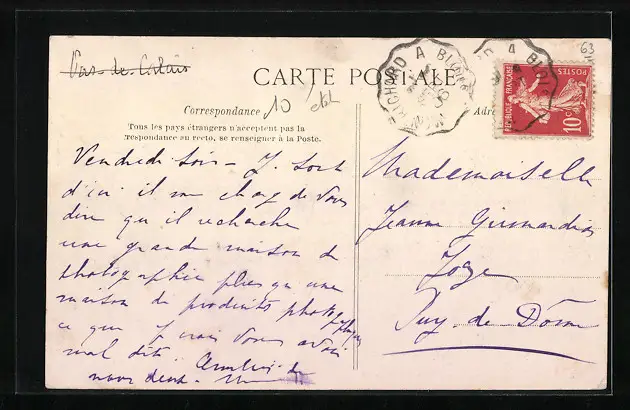 Pas-de-Calais
63
CARTE POSTALE
10
Correspondance
Adr
Tous les pays étrangers n'acceptent pas la
correspondance au recto, se renseigner à la Poste.
RICHARD A BU
D A BU
REPUBLIQUE FRANÇAISE
POSTES
10c
Vendredi soir - J. sort
d'ici il me charge de vous
dire qu'il recherche
une grande maison de
photographie plus qu'une
maison de produits photo
ce que j'avais
mal dit. Amitiés de
nous deux.
Mademoiselle
Jeanne
Joze
Puy de Dôme